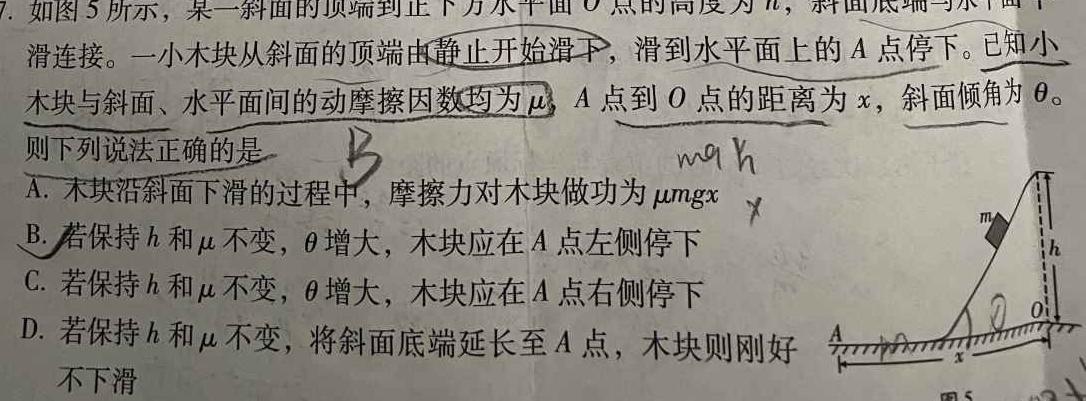 7. 如图5所示，某一斜面的顶端到正下方水平面O点的高度为h，斜面底端与水平面
滑连接。一小木块从斜面的顶端由静止开始滑下，滑到水平面上的A点停下。已知小
木块与斜面、水平面间的动摩擦因数均为μ，A点到O点的距离为x，斜面倾角为θ。
则下列说法正确的是
B
mgh
A. 木块沿斜面下滑的过程中，摩擦力对木块做功为μmgx
x
B. 若保持h和μ不变，θ增大，木块应在A点左侧停下
C. 若保持h和μ不变，θ增大，木块应在A点右侧停下
D. 若保持h和μ不变，将斜面底端延长至A点，木块则刚好
不下滑
m
h
A
O
x
图5